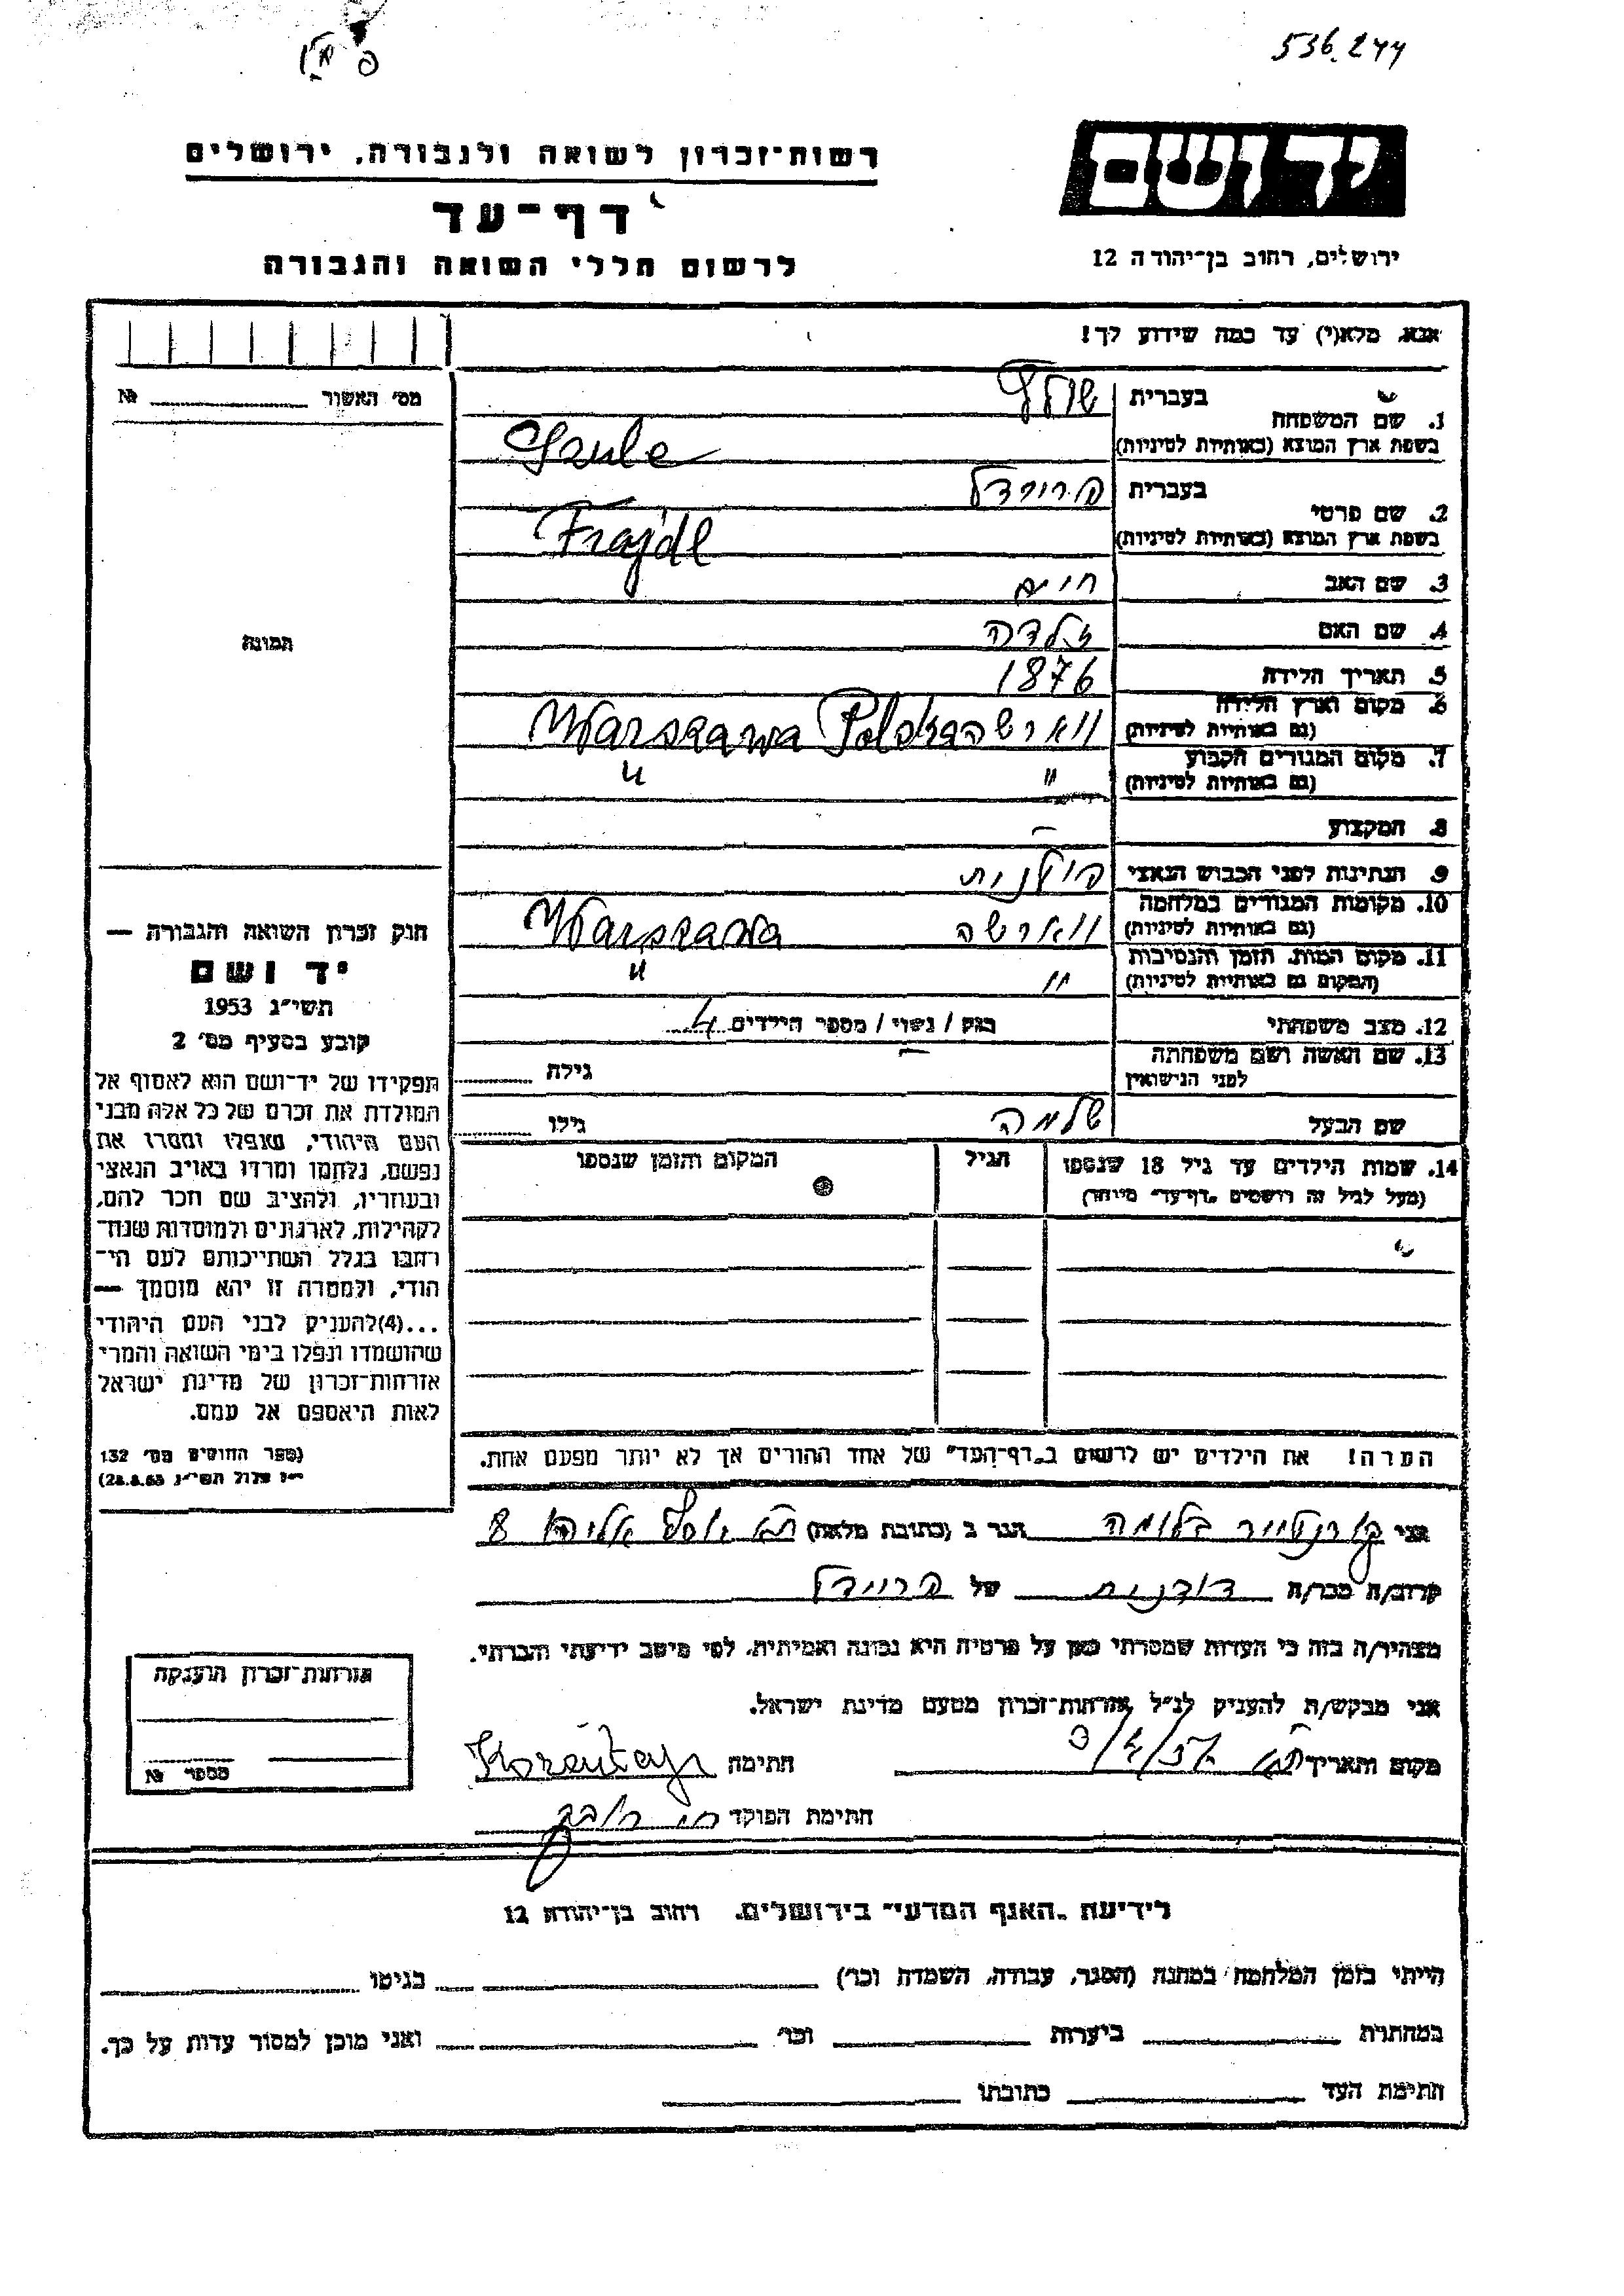 536.244
רשות־זכרון לשואה ולגבורה, ירושלים
יד ושם
דף־עד
ירושלים, רחוב בן־יהודה 12
לרשום חללי השואה והגבורה
אנא, מלא(י) עד כמה שידוע לך!
מס׳ האשור № 
1. שם המשפחה
בעברית
בשפת ארץ המוצא (באותיות לטיניות)
2. שם פרטי
בעברית פריידל
בשפת ארץ המוצא (באותיות לטיניות) Frajdl
3. שם האב חיים
4. שם האם זלדה
תמונה
5. תאריך הלידה 1876
6. מקום וארץ הלידה
(גם באותיות לטיניות) ווארשה Warszawa Polska
7. מקום המגורים הקבוע
(גם באותיות לטיניות) " "
8. המקצוע –
9. הנתינות לפני הכבוש הנאצי פולנית
10. מקומות המגורים במלחמה
(גם באותיות לטיניות) ווארשה Warszawa
11. מקום המות, הזמן והנסיבות
(המקום גם באותיות לטיניות) " "
12. מצב משפחתי רווק / נשוי / מספר הילדים 4
13. שם האשה ושם משפחתה
לפני הנישואין – גילה
שם הבעל שלמה גילו
14. שמות הילדים עד גיל 18 שנספו הגיל המקום והזמן שנספו
(מעל לגיל זה רושמים „דף־עד״ מיוחד)
חוק זכרון השואה והגבורה —
יד ושם
תשי״ג 1953
קובע בסעיף מס׳ 2
תפקידו של יד־ושם הוא לאסוף אל
המולדת את זכרם של כל אלה מבני
העם היהודי, שנפלו ומסרו את
נפשם, נלחמו ומרדו באויב הנאצי
ובעוזריו, ולהציב שם וזכר להם,
לקהילות, לארגונים ולמוסדות שנח־
רבו בגלל השתייכותם לעם הי־
הודי, ולמטרה זו יהא מוסמך —
...(4)להעניק לבני העם היהודי
שהושמדו ונפלו בימי השואה והמרי
אזרחות־זכרון של מדינת ישראל
לאות היאספם אל עמם.
(ספר החוקים מס׳ 132
הערה! את הילדים יש לרשום ב„דף־העד״ של אחד ההורים אך לא יותר מפעם אחת.
אני בלומה הגר ב (כתובת מלאה) ת״א יוסף אליהו 8
קרוב/ה מכר/ה דודנית של פריידל
מצהיר/ה בזה כי העדות שמסרתי כאן על פרטיה היא נכונה ואמיתית, לפי מיטב ידיעתי והכרתי.
אני מבקש/ת להעניק לנ״ל אזרחות־זכרון מטעם מדינת ישראל.
מקום ותאריך חתימה
חתימת הפוקד
אזרחות־זכרון הוענקה
מספר №
לידיעת „האגף המדעי״ בירושלים, רחוב בן־יהודה 12
הייתי בזמן המלחמה במחנה (הסגר, עבודה, השמדה וכו׳) בגיטו
במחתרת ביערות וכו׳ ואני מוכן למסור עדות על כך.
חתימת העד כתובתו